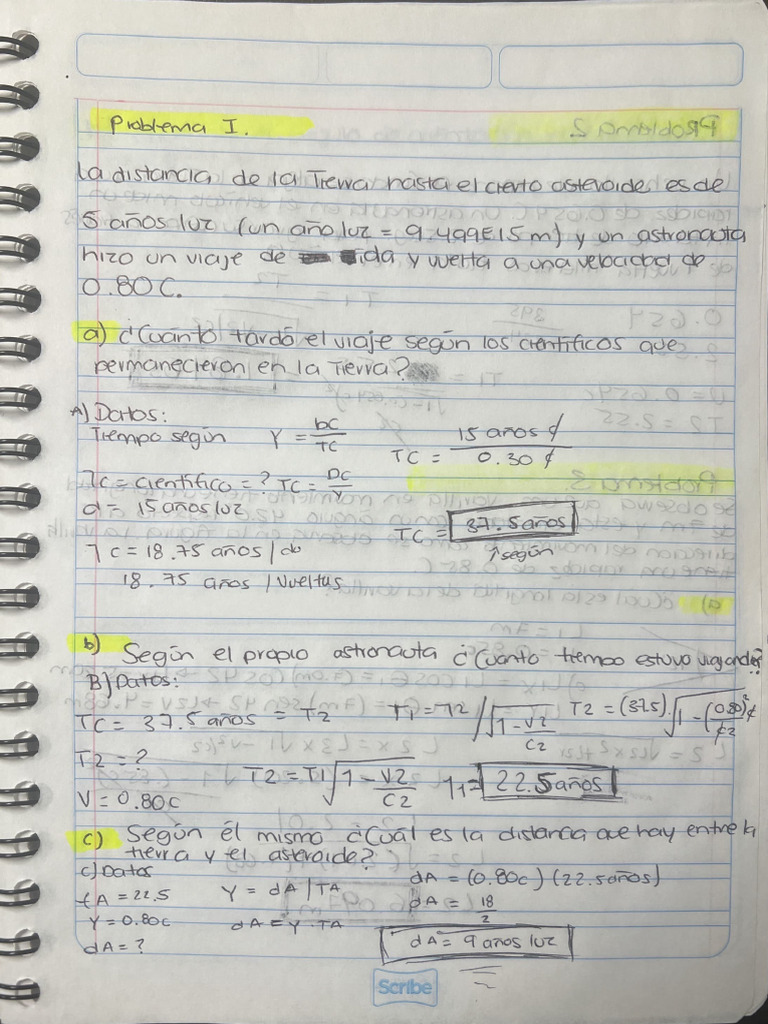 Problema I.
La distancia de la Tierra hasta el cierto asteroide es de
5 años luz (un año luz = 9.499E15 m) y un astronauta
hizo un viaje de ida y vuelta a una velocidad de
0.80 C.
a) ¿Cuánto tardó el viaje según los científicos que
permanecieron en la Tierra?
A) Datos:
Tiempo según Y = DC/TC TC = 15 años ¢ / 0.30 ¢
Tc = científico = ? TC = DC/V
d = 15 años luz
TC = 37.5 años
↑ según
T c = 18.75 años / do
18.75 años / Vueltas
b) Según el propio astronauta ¿Cuánto tiempo estuvo viajando?
B) Datos:
TC = 37.5 años = T2 T1 = T2 / √1 - V2/C2 T2 = (37.5) √1 - (0.80)²¢/¢2
T2 = ?
T2 = T1 √1 - V2/C2 T1 = 22.5 años
V = 0.80c
c) Según él mismo ¿Cuál es la distancia que hay entre la
tierra y el asteroide?
c) Datos dA = (0.80c) (22.5 años)
tA = 22.5 Y = dA | TA dA = 18/2
Y = 0.80c dA = Y · TA
dA = ? dA = 9 años luz
Scribe